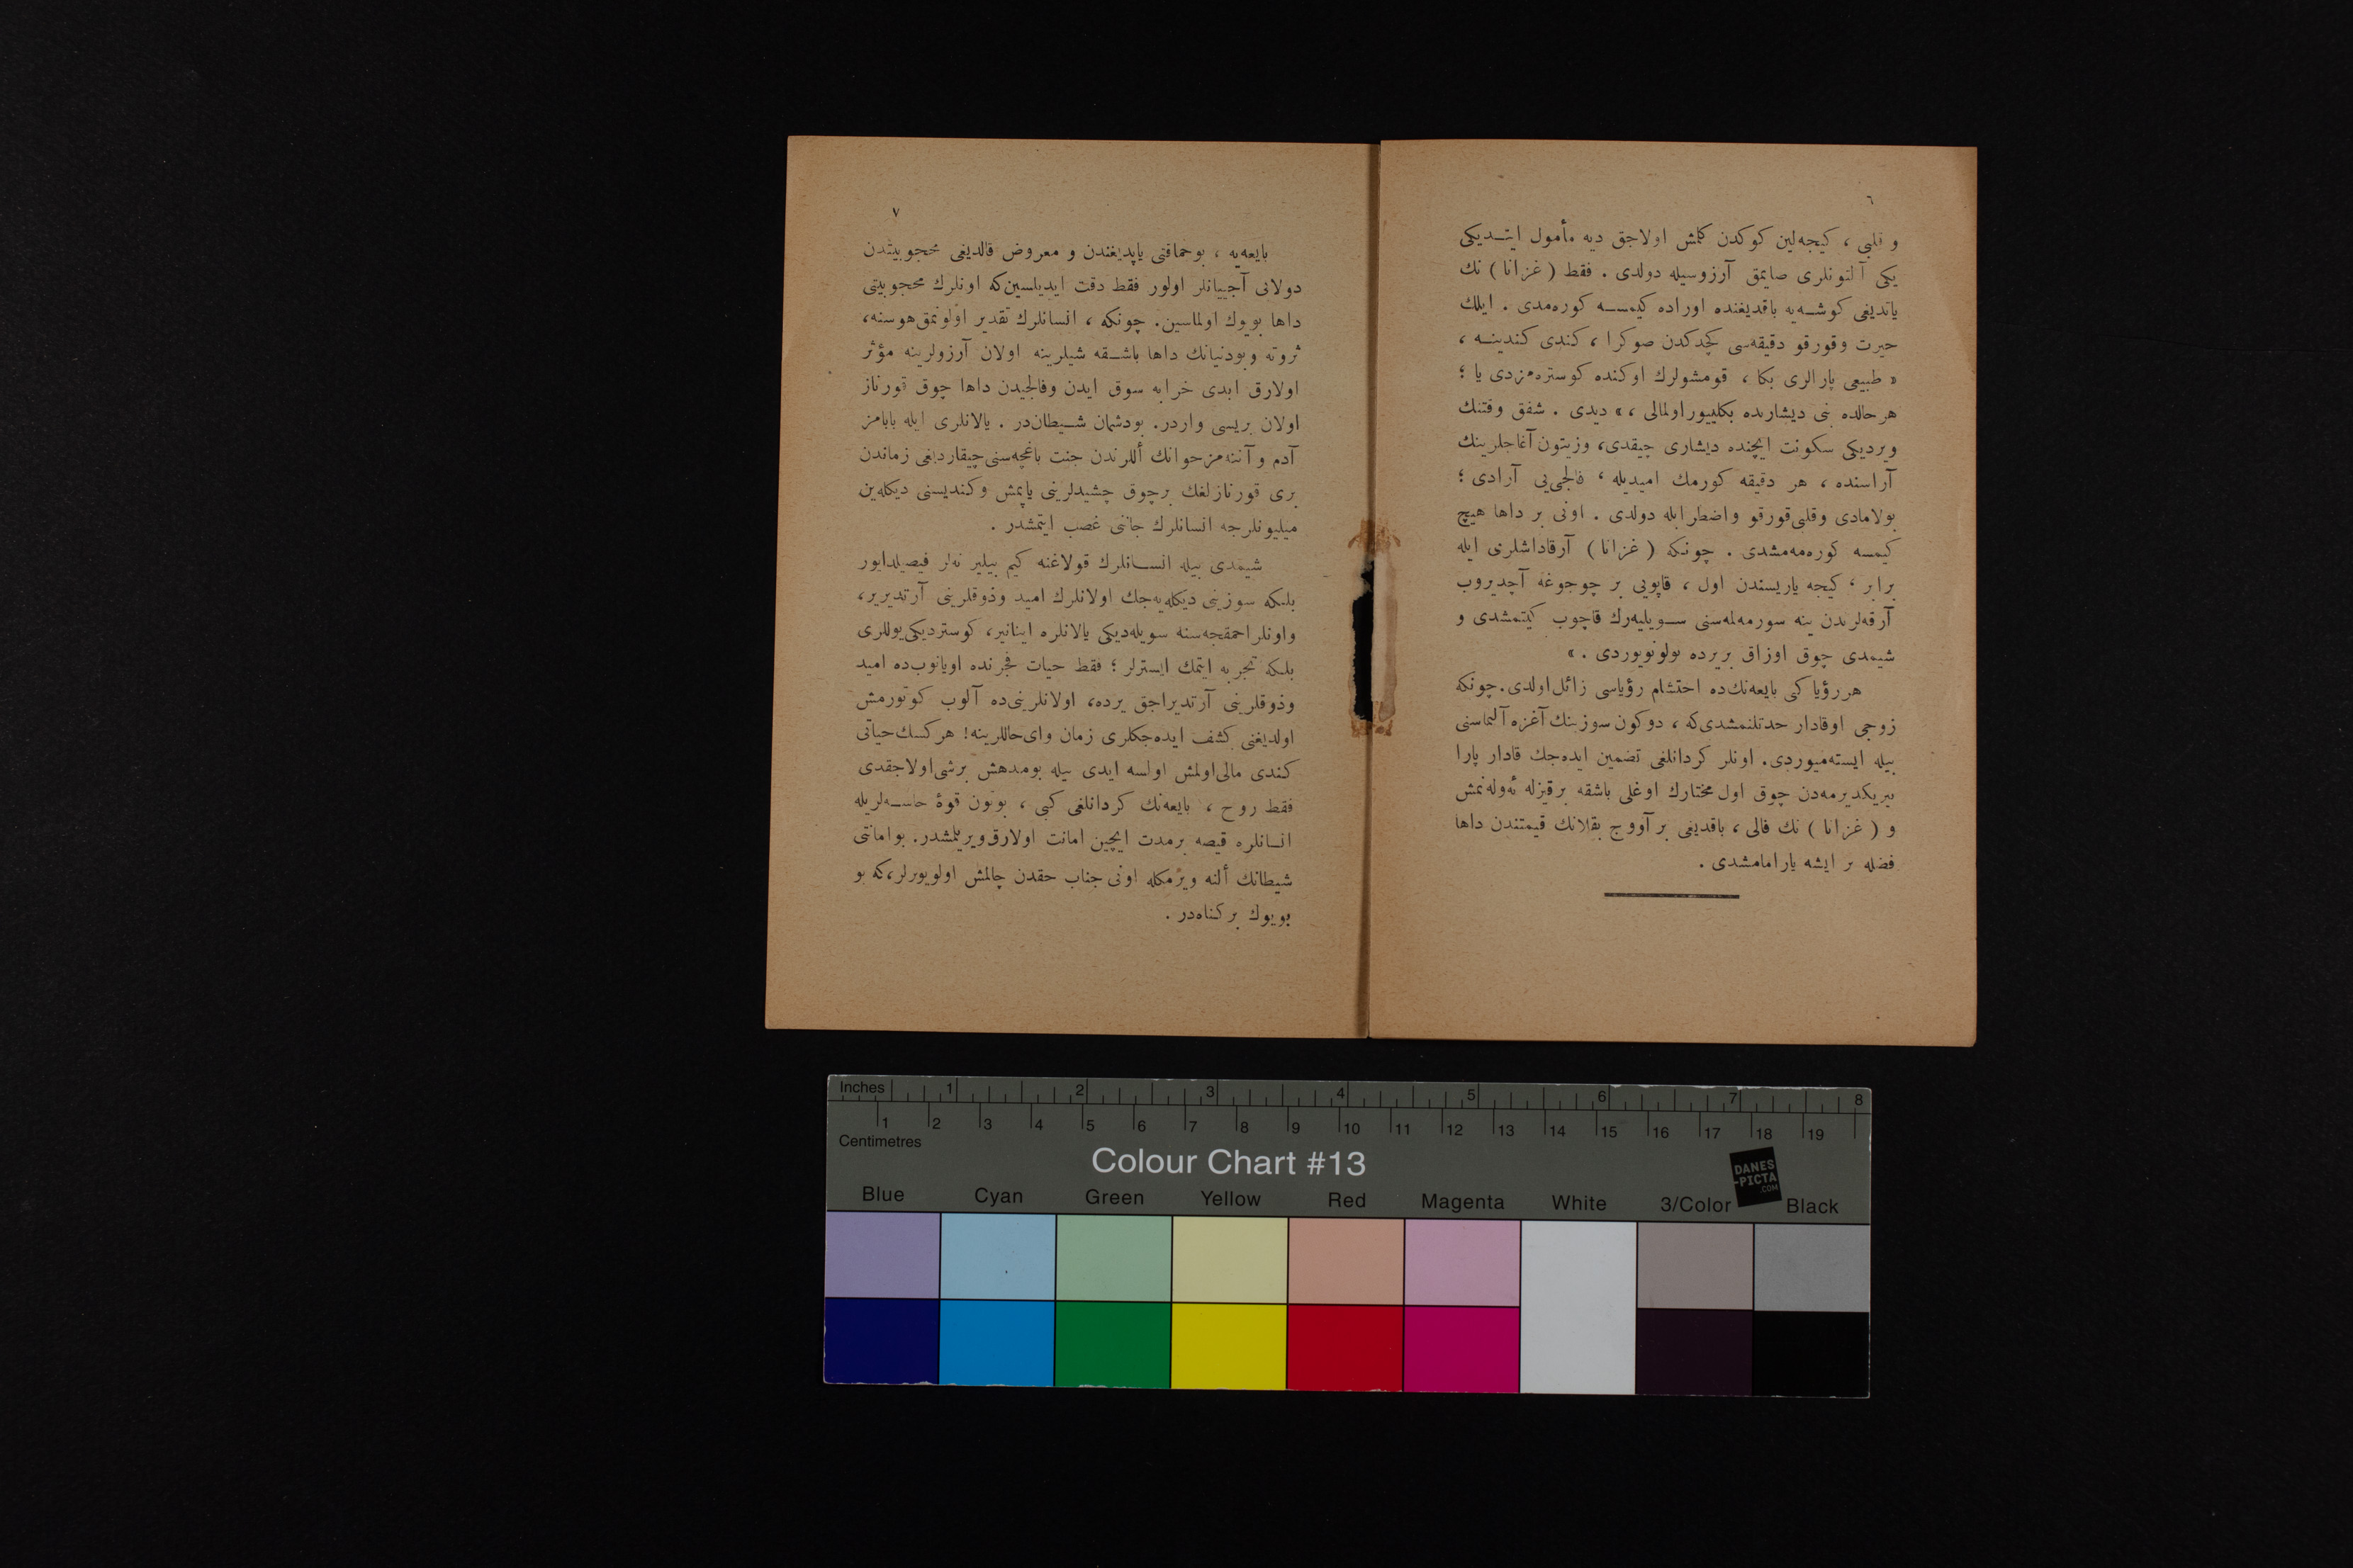 ٦
و قلبی ، كیجه‌لین كوكدن كلمش اولاجق دیه مأمول ایتـدیكی
یكی آلتونلری صایمق آرزوسیله دولدی . فقط ( غزانا ) نك
یاتدیغی كوشـه‌یه باقدیغنده اوراده كیمسـه كوره‌مدی . ایلك
حیرت وقورقو دقیقه‌سی كچدكدن صوكرا ، كندی كندینـه ،
« طبیعی پارالری بكا ، قومشولرك اوكنده كوستره‌مزدی یا ؛
هر حالده بنی دیشاریده بكلییور اولمالی ، » دیدی . شفق وقتنك
ویردیكی سكونت ایچنده دیشاری چیقدی، وزیتون آغاجلرینك
آراسنده ، هر دقیقه كورمك امیدیله ، فالجی‌یی آرادی ؛
بولامادی وقلبی قورقو واضطرابله دولدی . اونی بر داها هیچ
كیمسه كوره‌مه‌مشدی . چونكه ( غزانا ) آرقاداشلری ایله
برابر ، كیجه یاریسندن اول ، قاپویی بر چوجوغه آچدیروب
آرقه‌لرندن ینه سورمه‌لمه‌سنی سـویلیه‌رك قاچوب كیتمشدی و
شیمدی چوق اوزاق بریرده بولونویوردی . »
هر رؤیا كبی بایعه‌نك‌ده احتشام رؤیاسی زائل اولدی. چونكه
زوجی اوقادار حدتلنمشدی‌كه ، دوكون سوزینك آغزه آلنماسنی
بیله ایسته‌میوردی. اونلر كردانلغی تضمین ایده‌جك قادار پارا
بیریكدیرمه‌دن چوق اول مختارك اوغلی باشقه برقیزله ئه‌وله‌نمش
و ( غزانا ) نك فالی ، باقدیغی بر آووج بقلانك قیمتندن داها
فضله بر ایشه یارامامشدی .
٧
بایعه‌یه ، بوحماقتی یاپدیغندن و معروض قالدیغی محجوبیتدن
دولایی آجییانلر اولور فقط دقت ایدیلسین‌كه اونلرك محجوبیتی
داها بویوك اولماسین. چونكه ، انسانلرك تقدیر اولونمق هوسنه،
ثروته وبودنیانك داها باشـقه شیلرینه اولان آرزولرینه مؤثر
اولارق ابدی خرابه سوق ایدن وفالجیدن داها چوق قورناز
اولان بریسی واردر. بودشمان شـیطان‌در . یالانلری ایله بابامز
آدم و آننه‌مز حوانك أللرندن جنت باغچه‌سنی چیقاردیغی زماندن
بری قورنازلغك برچوق چشیدلرینی یاپمش وكندیسنی دیكله‌ین
میلیونلرجه انسانلرك جاننی غصب ایتمشدر .
شیمدی بیله انسـانلرك قولاغنه كیم بیلیر نه‌لر فیصیلدایور
بلكه سوزینی دیكله‌یه‌جك اولانلرك امید وذوقلرینی آرتدیریر،
واونلر احمقجه‌سنه سویله‌دیكی یالانلره اینانیر، كوستردیكی یوللری
بلكه تجربه ایتمك ایسترلر ؛ فقط حیات فجرنده اویانوب‌ده امید
وذوقلرینی آرتدیراجق یرده، اولانلرینی‌ده آلوب كوتورمش
اولدیغنی كشف ایده‌جكلری زمان وای حاللرینه! هركسك حیاتی
كندی مالی اولمش اولسه ایدی بیله بومدهش برشی اولاجقدی
فقط روح ، بایعه‌نك كردانلغی كبی ، بوتون قوهٔ حاسـه‌لریله
انسانلره قیصه برمدت ایچین امانت اولارق ویریلمشدر. بوامانتی
شیطانك ألنه ویرمكله اونی جناب حقدن چالمش اولویورلر،كه بو
بویوك بر كناه‌در .
Inches 1 2 3 4 5 6 7 8
1 2 3 4 5 6 7 8 9 10 11 12 13 14 15 16 17 18 19
Centimetres
Colour Chart #13
DANES
-PICTA
.COM
Blue Cyan Green Yellow Red Magenta White 3/Color Black